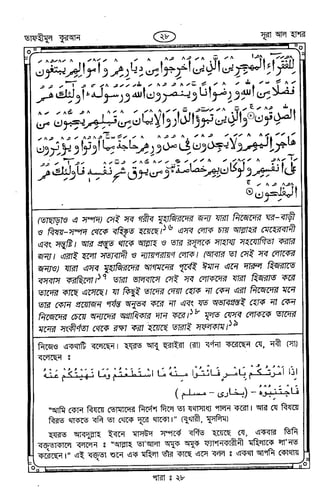 তাফহীমুল কুরআন ২৮ সূরা আল হাশর
لِلْفُقَرَاءِ الْمُهٰجِرِيْنَ الَّذِيْنَ اُخْرِجُوْا مِنْ دِيَارِهِمْ وَاَمْوَالِهِمْ يَبْتَغُوْنَ
فَضْلًا مِّنَ اللهِ وَرِضْوَانًا وَّيَنْصُرُوْنَ اللهَ وَرَسُوْلَهٗ ۚ اُولٰٓئِكَ هُمُ
الصّٰدِقُوْنَ ۞ وَالَّذِيْنَ تَبَوَّؤُ الدَّارَ وَالْاِيْمَانَ مِنْ قَبْلِهِمْ يُحِبُّوْنَ مَنْ
هَاجَرَ اِلَيْهِمْ وَلَا يَجِدُوْنَ فِىْ صُدُوْرِهِمْ حَاجَةً مِّمَّا اُوْتُوْا وَيُؤْثِرُوْنَ
عَلٰٓى اَنْفُسِهِمْ وَلَوْ كَانَ بِهِمْ خَصَاصَةٌ ۚ وَمَنْ يُّوْقَ شُحَّ نَفْسِهٖ فَاُولٰٓئِكَ هُمُ
الْمُفْلِحُوْنَ ۞
(তাছাড়াও এ সম্পদ) সেই সব গরীব মুহাজিরদের জন্য যারা নিজেদের ঘর-বাড়ী
ও বিষয়-সম্পদ থেকে বহিষ্কৃত হয়েছে।১৬ এসব লোক চায় আল্লাহর মেহেরবানী
এবং সন্তুষ্টি। আর প্রস্তুত থাকে আল্লাহ ও তার রসূলকে সাহায্য সহযোগিতা করার
জন্য। এরাই হলো সত্যবাদী ও ন্যায়পরায়ণ লোক। (আবার তা সেই সব লোকের
জন্যও) যারা এসব মুহাজিরদের আগমনের পূর্বেই ঈমান এনে দারুল হিজরাতে
বসবাস করছিলো।১৭ তারা ভালবাসে সেই সব লোকদের যারা হিজরাত করে
তাদের কাছে এসেছে। যা কিছুই তাদের দেয়া হোক না কেন এরা নিজেদের মনে
তার কোন প্রয়োজন পর্যন্ত অনুভব করে না এবং যত অভাবগ্রস্তই হোক না কেন
নিজেদের চেয়ে অন্যদের অগ্রাধিকার দান করে।১৮ মূলত যেসব লোককে তাদের
মনের সংকীর্ণতা থেকে রক্ষা করা হয়েছে তারাই সফলকাম।১৯
নিজেও একথাটি বলেছেন। হযরত আবু হুরাইরা (রা) বর্ণনা করেছেন যে, নবী (সা)
বলেছেন :
اِذَا اَمَرْتُكُمْ بِاَمْرٍ فَائْتُوْا مِنْهُ مَا اسْتَطَعْتُمْ وَمَا نَهَيْتُكُمْ عَنْهُ
فَاجْتَنِبُوْهُ - (بخارى - مسلم)
"আমি কোন বিষয়ে তোমাদের নির্দেশ দিলে তা যথাসাধ্য পালন করো। আর যে বিষয়ে
বিরত থাকতে বলি তা থেকে দূরে থাকো।" (বুখারী, মুসলিম)
হযরত আবদুল্লাহ ইবনে মাসউদ সম্পর্কে বর্ণিত হয়েছে যে, একবার তিনি
বক্তৃতাকালে বললেন : "আল্লাহ তা'আলা অমুক অমুক ফ্যাশনকারীনী মহিলাকে লা'নত
করেছেন।" এই বক্তৃতা শুনে এক মহিলা তাঁর কাছে এসে বলল : একথা আপনি কোথায়
পারা : ২৮